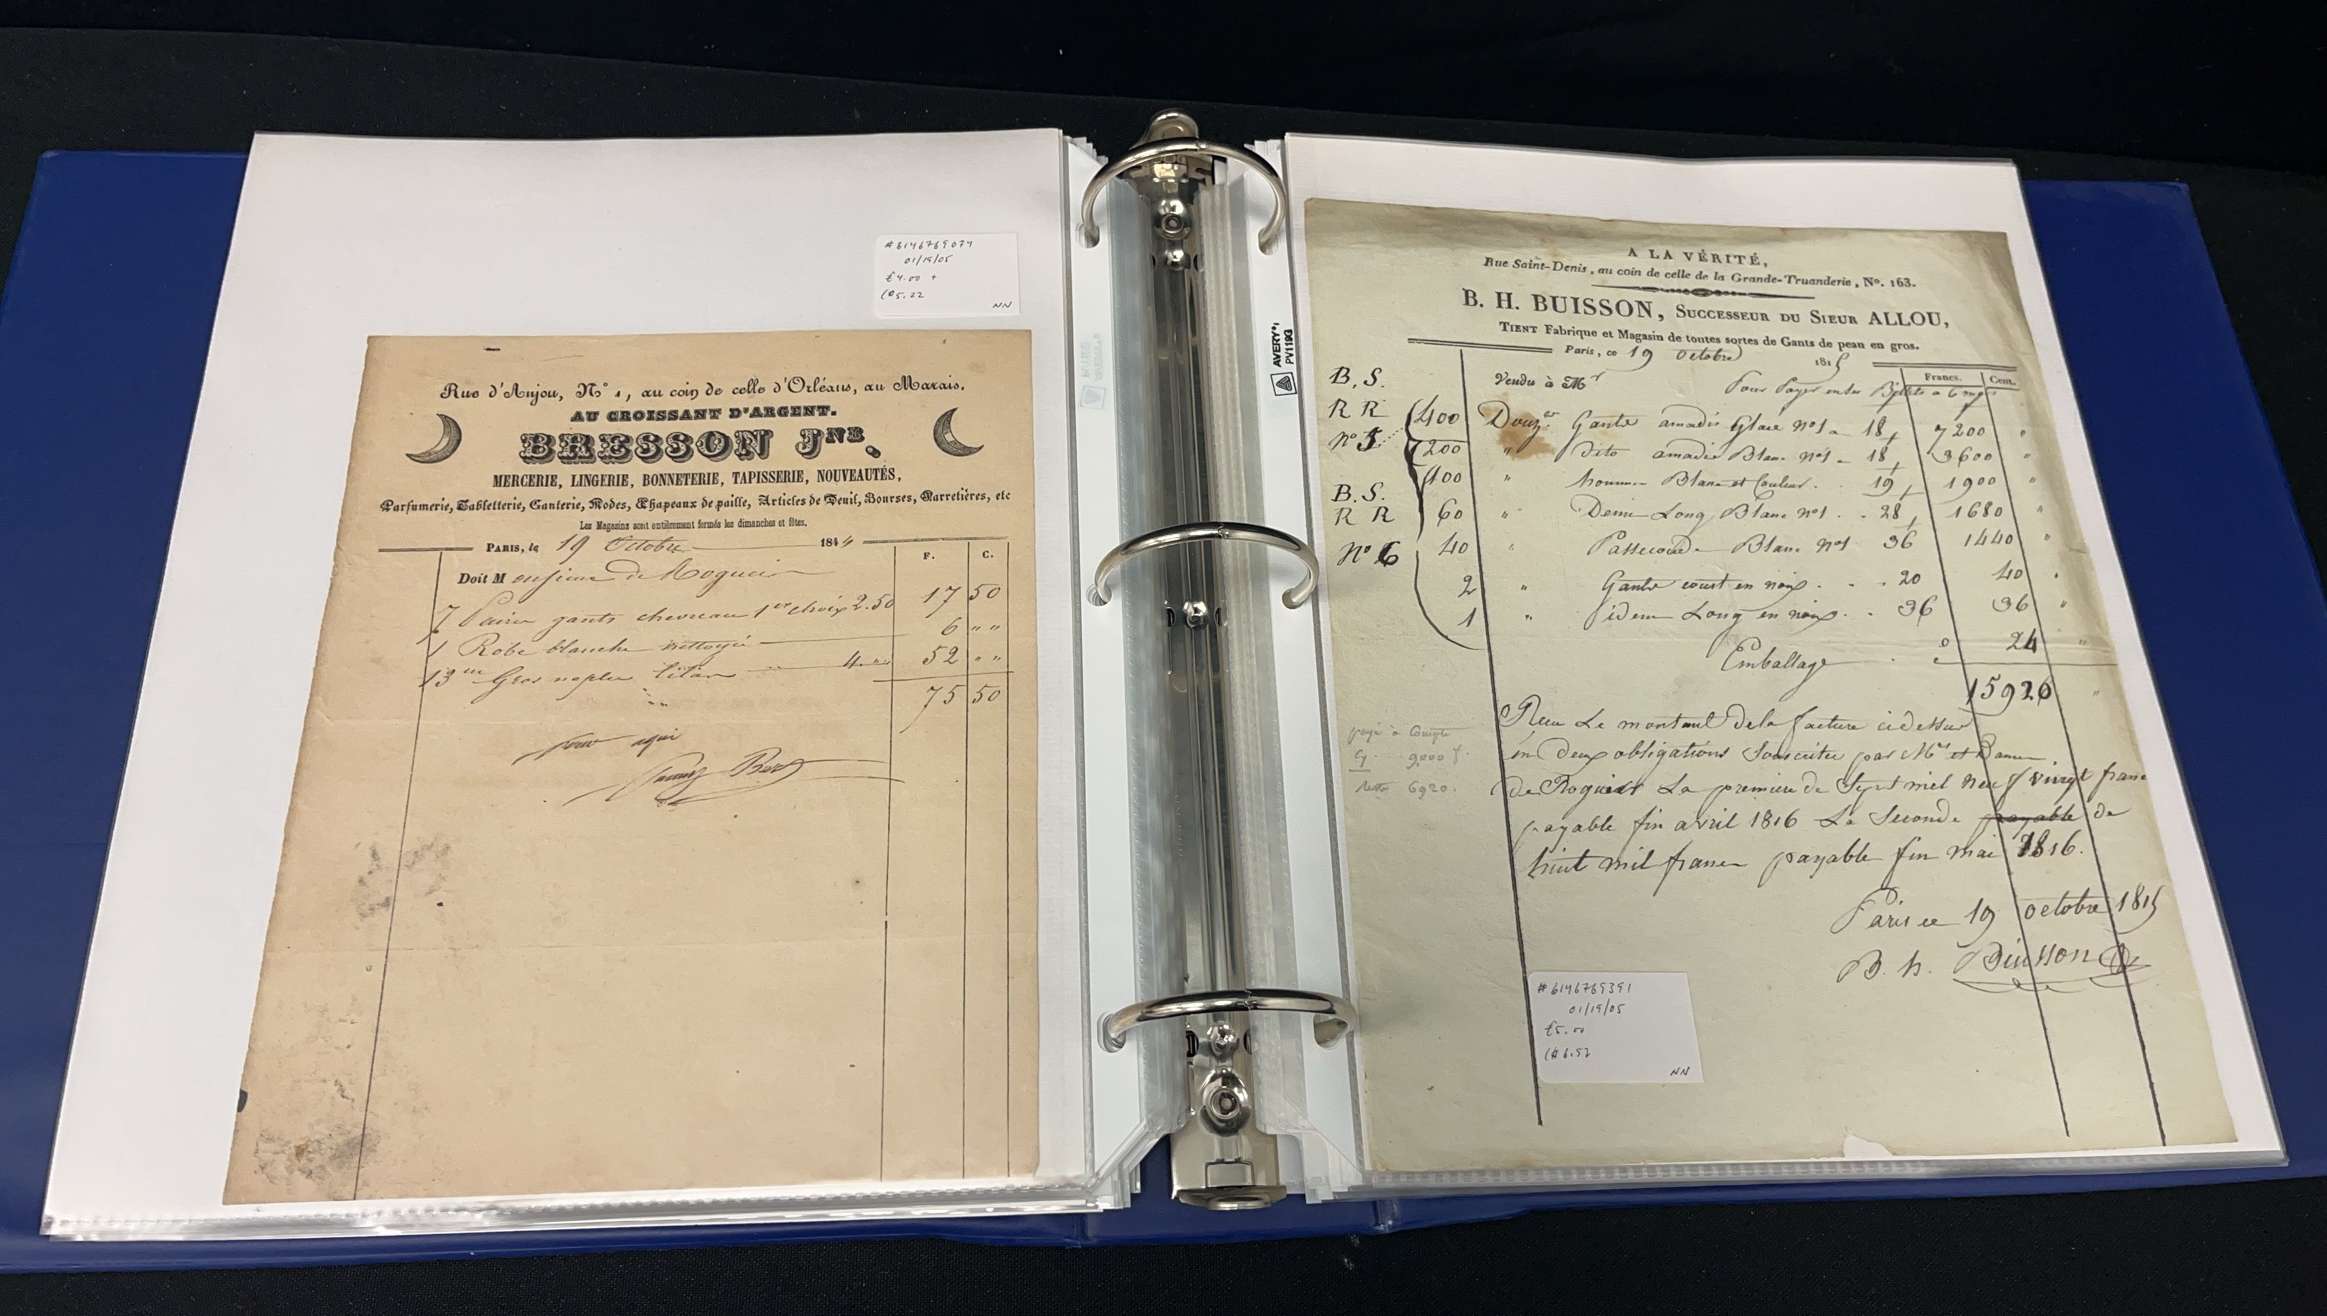 #6146769074
01/19/05
£4.00 +
($5.22
NN
Rue d'Anjou, N° 1, au coin de celle d'Orléans, au Marais.
AU CROISSANT D'ARGENT.
BRESSON JNE.
MERCERIE, LINGERIE, BONNETERIE, TAPISSERIE, NOUVEAUTÉS,
Parfumerie, Tabletterie, Ganterie, Modes, Chapeaux de paille, Articles de Deuil, Bourses, Jarretières, etc
Les Magasins sont entièrement fermés les dimanches et fêtes.
PARIS, le 19 Octobre 1844
F. C.
Doit Monsieur de Roguin
7 Paires gants chevreau 1er choix 2.50 17 50
1 Robe blanche nettoyée 6 " "
13 m Gros naples lilas 4. " " 52 " "
75 50
pour aquit
AVERY®
PV119G
A LA VÉRITÉ,
Rue Saint-Denis, au coin de celle de la Grande-Truanderie, No. 163.
B. H. BUISSON, SUCCESSEUR DU SIEUR ALLOU,
TIENT Fabrique et Magasin de toutes sortes de Gants de peau en gros.
Paris, ce 19 Octobre 1815
Vendu à Mr Pour Payer en ses Billets a 6 mois
Francs. Cent.
B. S.
R R
N° 5
B. S.
R R
N° 6
400 Douz.es Gants amadis Glacé n°1 - 18 7200 "
200 " Dito amadis Blanc n°1 - 18 3600 "
100 " hommes Blanc et Couleur . . 19 1900 "
60 " Demi Long Blanc n°1 . . 28 1680 "
40 " Passecoude Blanc N°1 36 1440 "
2 " Gants court en noix . . . 20 40 "
1 " idem Long en noix . . 36 36 "
Emballage . 24 "
15920 "
payé à Compte
9000 f.
reste 6920.
Reçu Le montant de la facture ci dessus
en Deux obligations Souscrites par Mr et Dame
de Roguin La premiere de Sept mil neuf vingt francs
payable fin avril 1816 La Seconde payable de
huit mil francs payable fin mai 1816.
Paris ce 19 octobre 1815
B. h. Buisson
#6146769391
01/19/05
£5.00
($6.52
NN